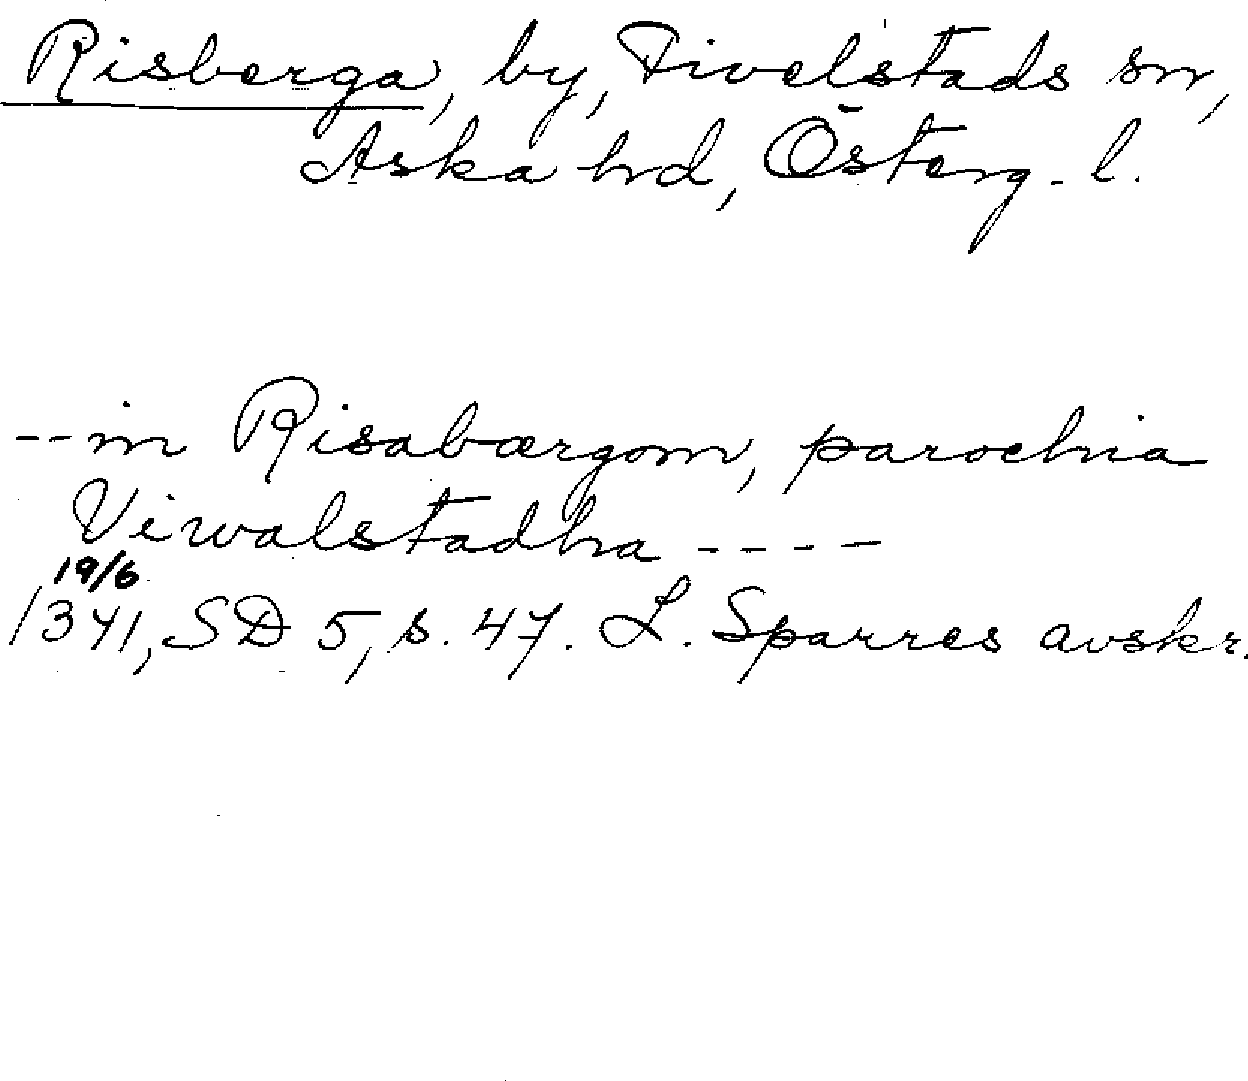 Risberga, by, Fivelstads sn,
Aska hd, Österg. l.
-- in Risabærgom, parochia
Viwalstadha ----
19/6
1341, SD 5, s. 47. L. Sparres avskr.